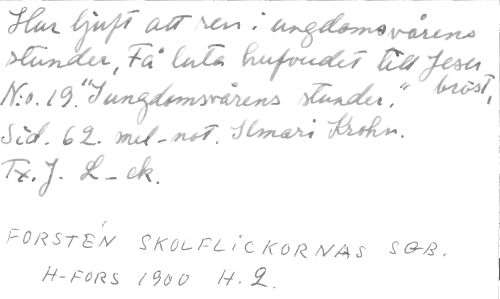 Hur ljuft att ren i ungdomsvårens
stunder, Få luta hufvudet till Jesu
bröst,
N:o. 19. "I ungdomsvårens stunder."
Sid. 62. mel-not. Ilmari Krohn.
Tx. J. L-ck.
FORSTÉN SKOLFLICKORNAS SGB.
H-FORS 1900 H. 2.